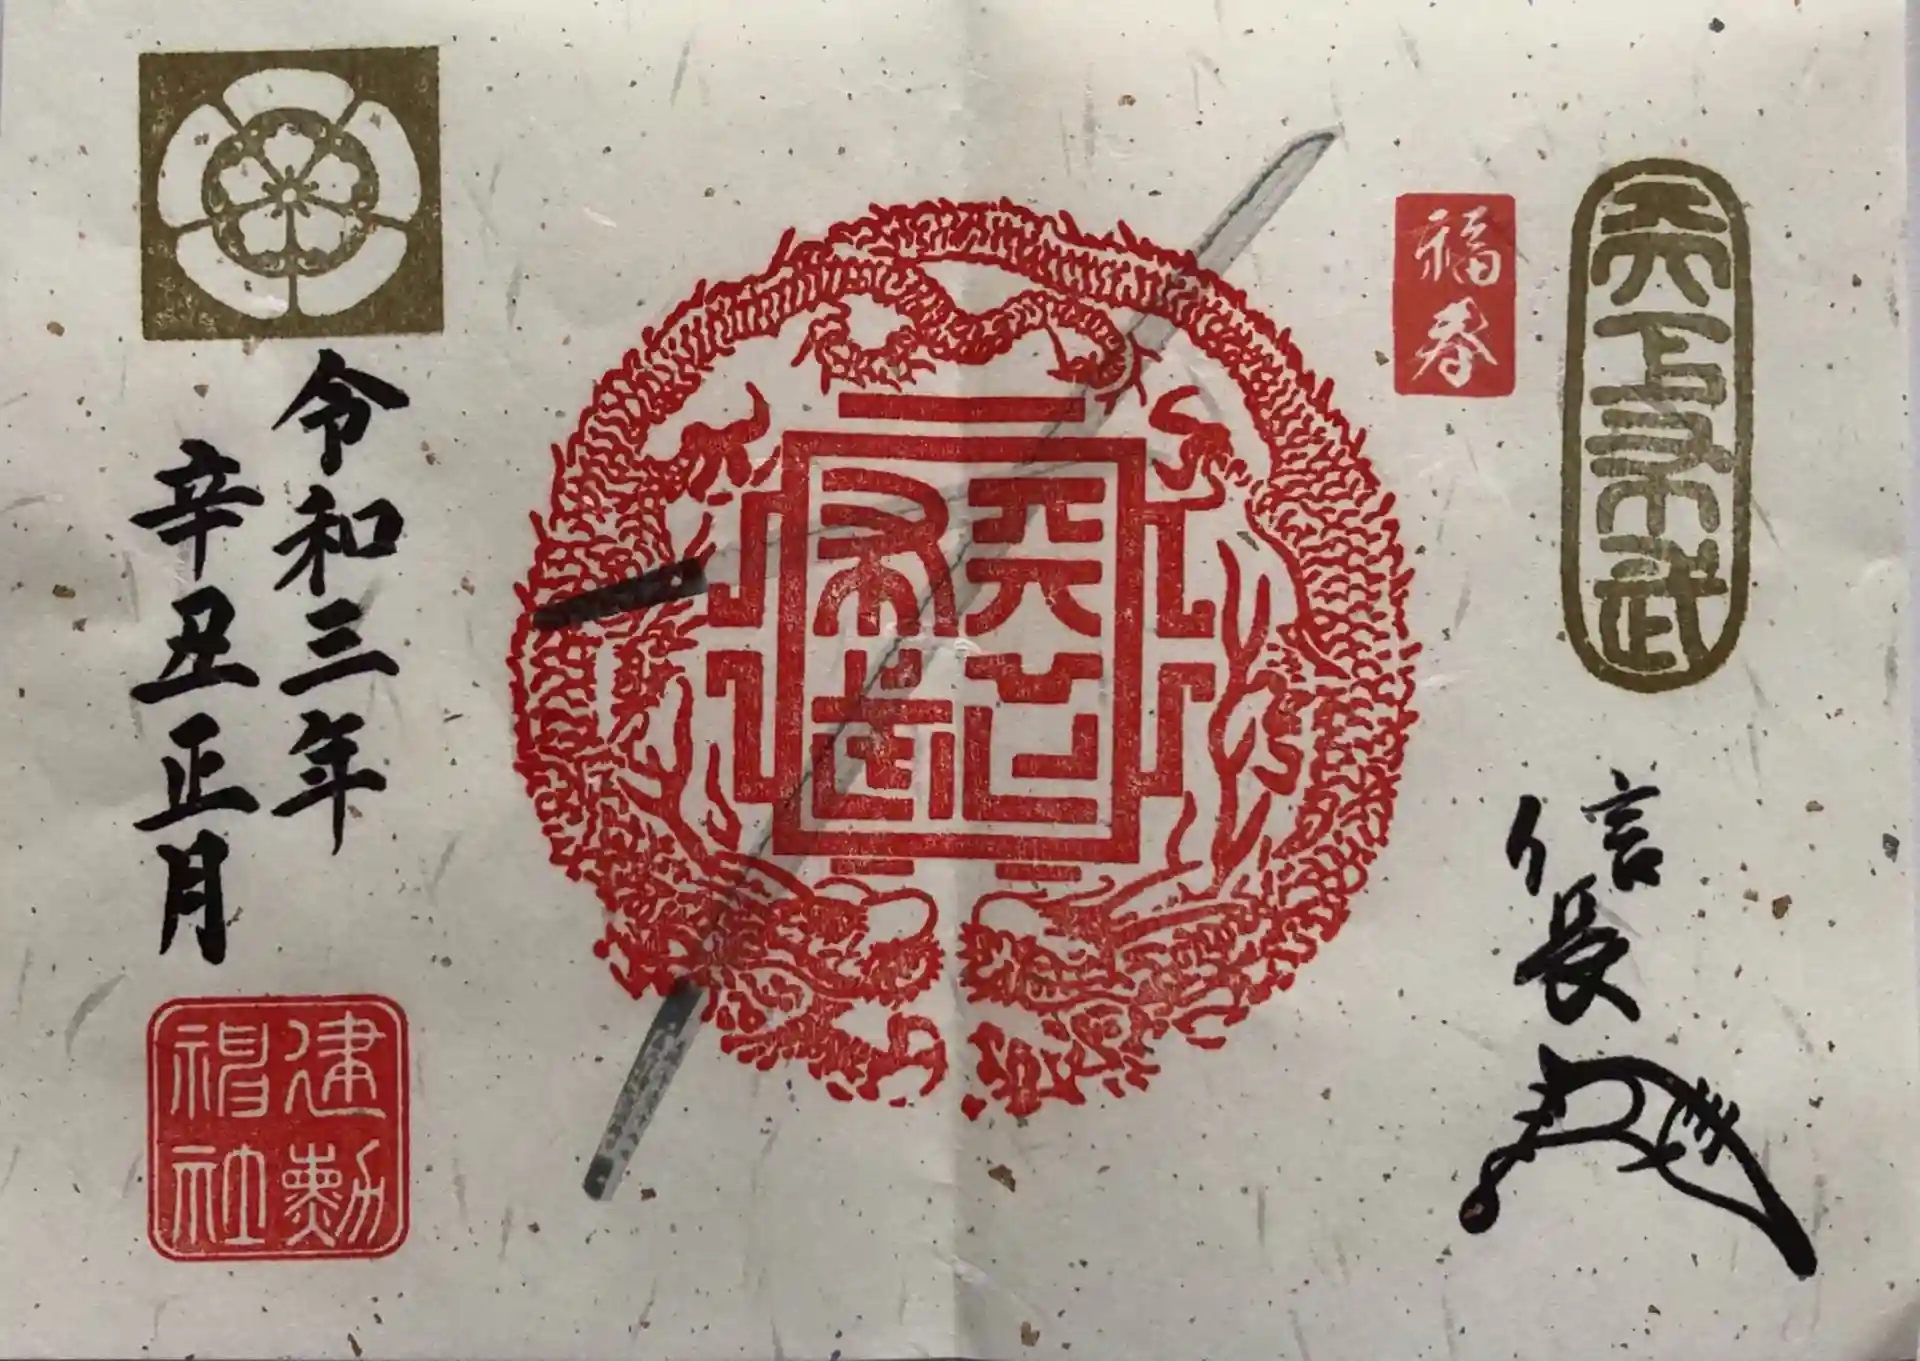 天下布武
福春
信長
天下布武
令和三年
辛丑正月
建勲神社